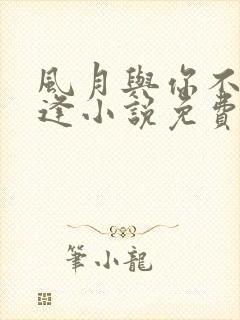 風月與你不
逢小說免費
筆小龍